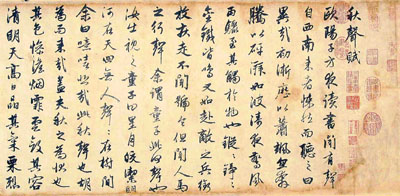 秋聲賦
歐陽子方夜讀書聞有聲
自西南来者悚然而聽之曰
異哉初淅瀝以蕭颯忽奔
騰以砰湃如波濤夜驚風
雨驟至其觸於物也鏦〻錚〻
金鐵皆鳴又如赴敵之兵銜
枚疾走不聞號令但聞人馬
之行聲余謂童子此何聲也
汝出視之童子曰星月皎潔明
河在天四無人聲〻在樹間
余曰噫嘻悲哉此秋聲也胡
為而来哉蓋夫秋之為狀也
其色慘澹烟霏雲斂其容
清明天高日晶其氣栗冽